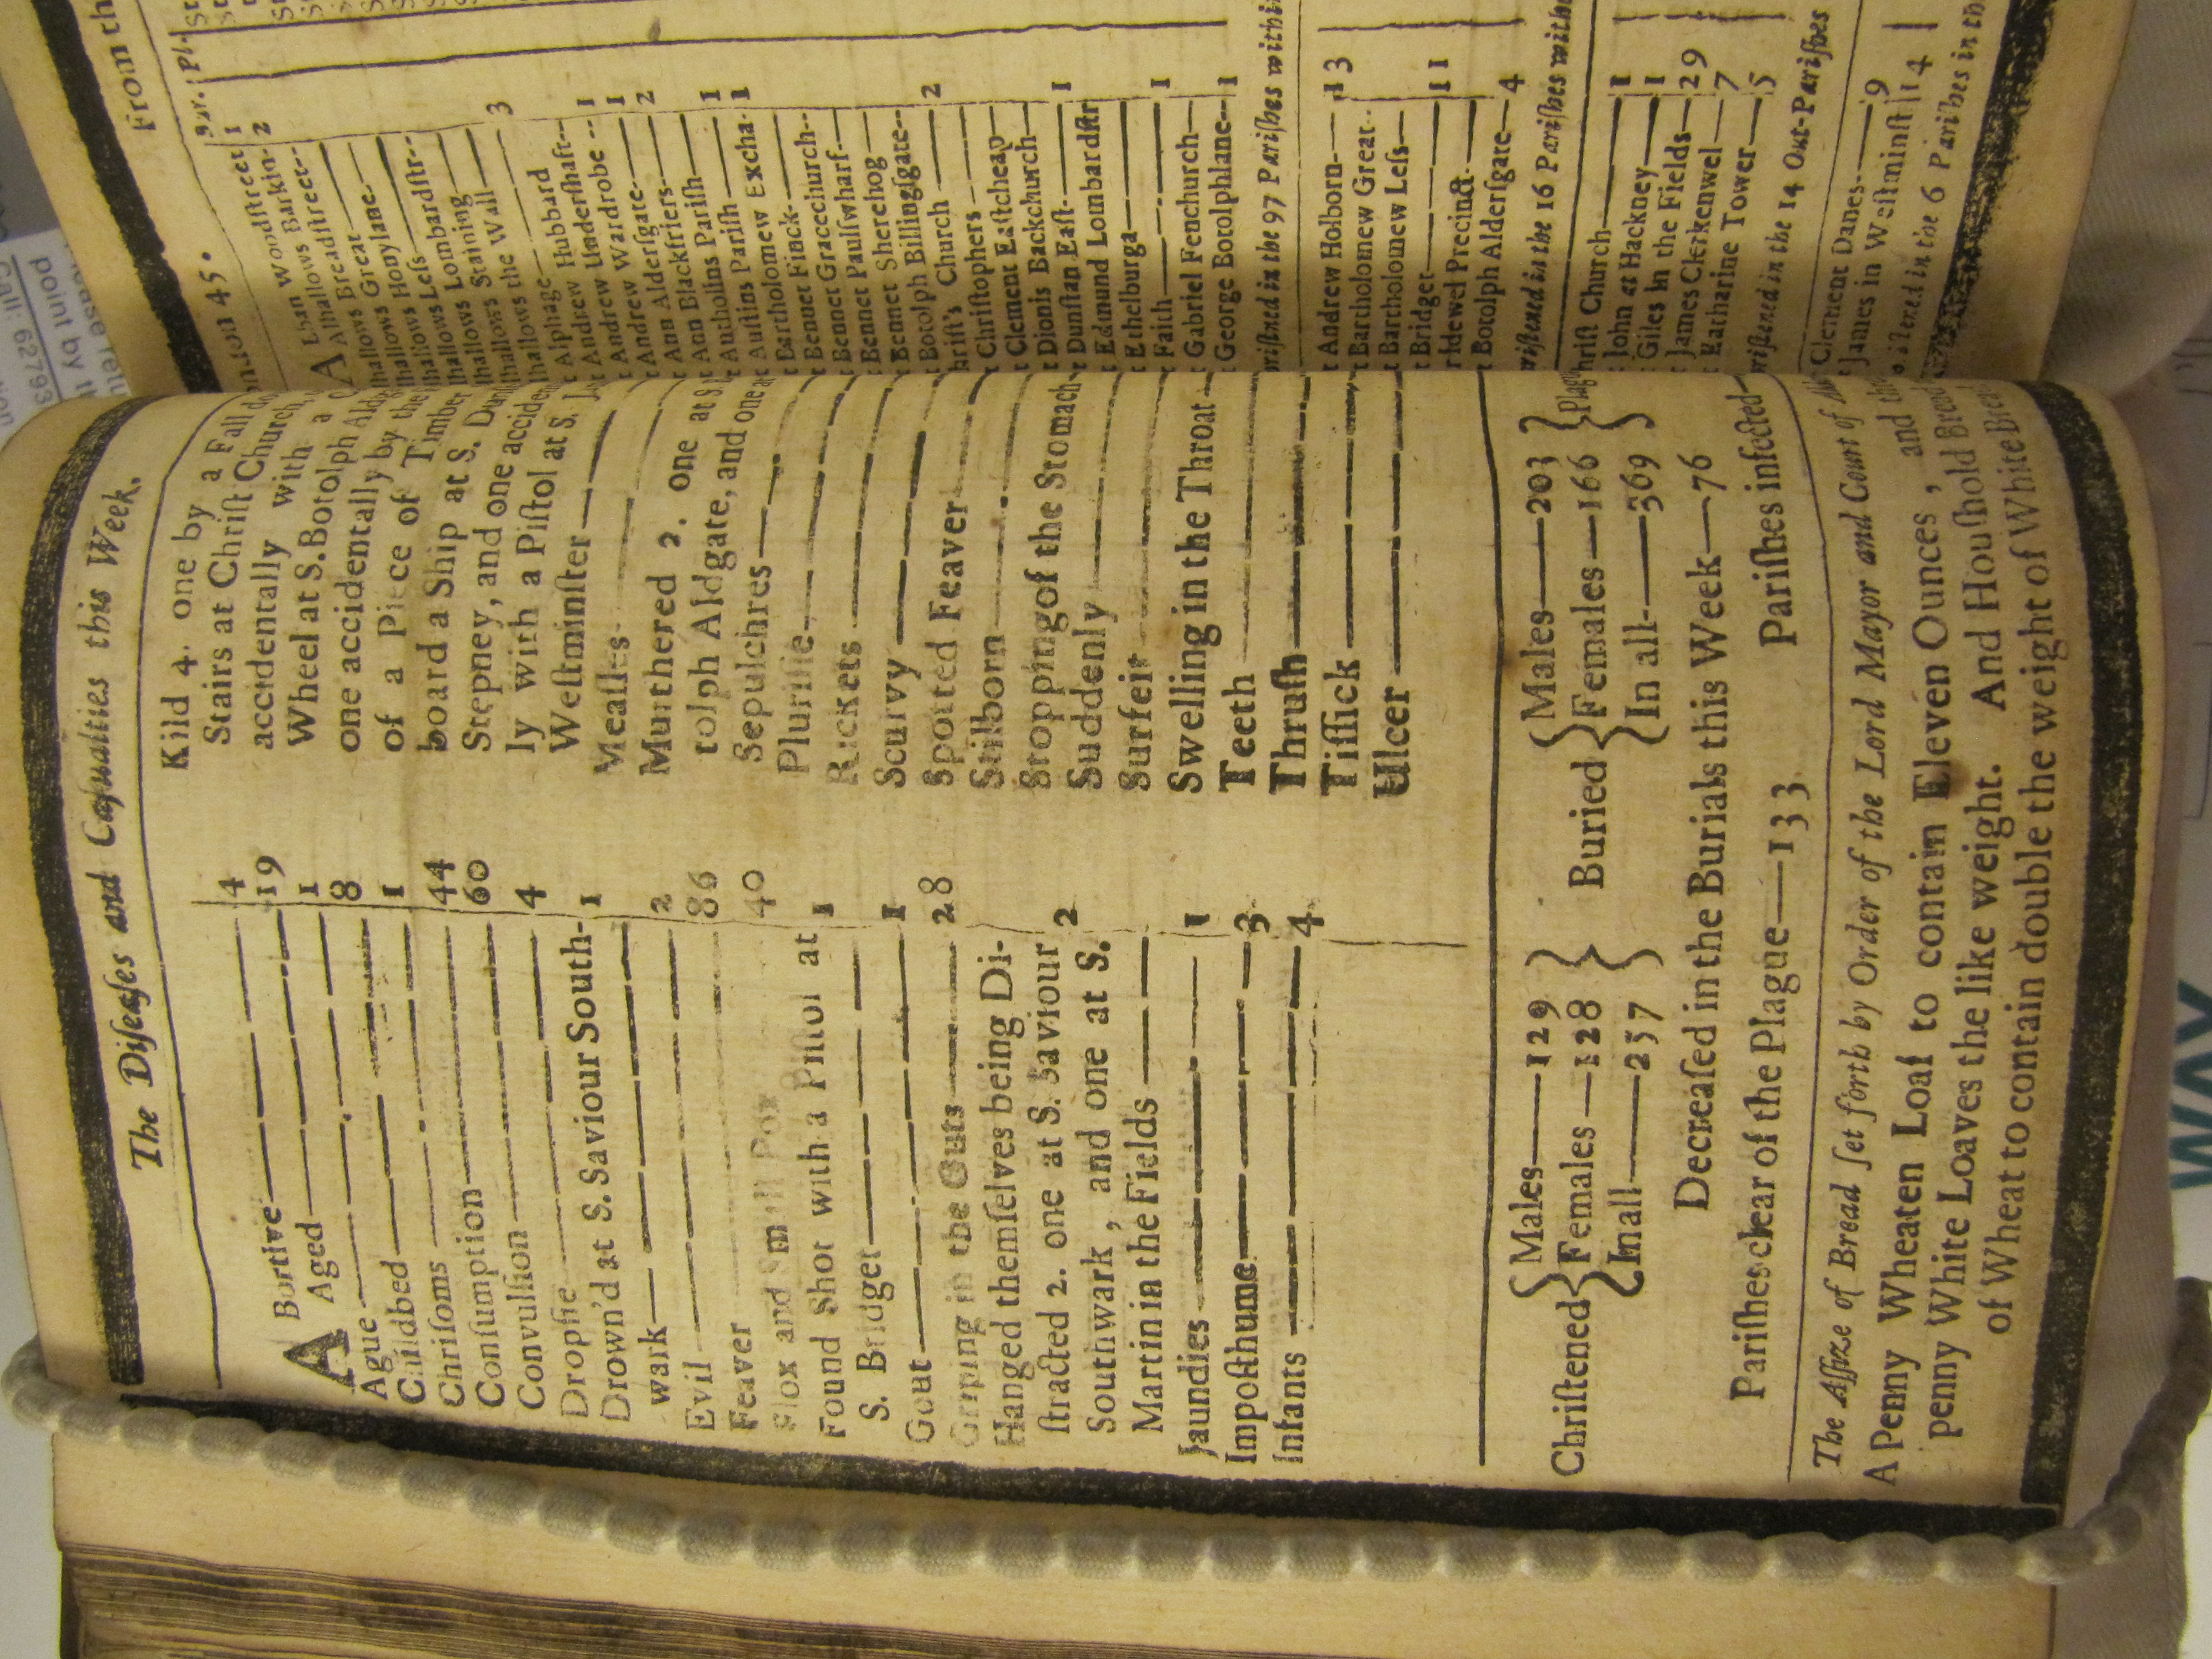 The Diſeaſes and Caſualties this Week.
ABortive 4
Aged 19
Ague 1
Childbed 8
Chriſoms 1
Conſumption 44
Convulſion 60
Dropſie 4
Drown'd at S. Saviour South-
wark 1
Evil 2
Feaver 86
Flox and Small Pox 40
Found Shot with a Piſtol at
S. Bridget 1
Gout 1
Griping in the Guts 28
Hanged themſelves being Di-
ſtracted 2. one at S. Saviour
Southwark, and one at S.
Martin in the Fields 2
Jaundies 1
Impoſthume 3
Infants 4
Kild 4. one by a Fall
Stairs at Chriſt Church,
accidentally with a
Wheel at S. Botolph Aldg
one accidentally by the
of a Piece of Timber
board a Ship at S. Dun
Stepney, and one acciden
ly with a Piſtol at S.
Weſtminſter
Meaſles
Murthered 2. one at S.
tolph Aldgate, and one at
Sepulchres
Pluriſie
Rickets
Scurvy
Spotted Feaver
Stilborn
Stopping of the Stomach
Suddenly
Surfeit
Swelling in the Throat
Teeth
Thruſh
Tiſſick
Ulcer
Chriſtened { Males 129
Females 128
In all 257 }
Buried { Males 203
Females 166
In all 369 } Plag
Decreaſed in the Burials this Week 76
Pariſhes clear of the Plague 133 Pariſhes infected
The Aſſize of Bread ſet forth by Order of the Lord Mayor and Court of
A Penny Wheaten Loaf to contain Eleven Ounces, and
penny White Loaves the like weight. And Houſhold Bread
of Wheat to contain double the weight of White Brea
From th
45.
Bur. Pl.
ALban Woodſtreet 1
Alhallows Barkin 2
Alhallows Breadſtreet
hallows Great
hallows Honylane
hallows Leſs
hallows Lombardſtr
hallows Staining
hallows the Wall 3
t Alphage
t Andrew Hubbard
t Andrew Underſhaft 1
t Andrew Wardrobe 1
t Ann Alderſgate 2
t Ann Blackfriers
t Antholins Pariſh 1
t Auſtins Pariſh 1
t Bartholomew Excha
t Bennet Finck
t Bennet Gracechurch
t Bennet Paulſwharf
t Bennet Sherehog
t Botolph Billingſgate
hriſt's Church 2
t Chriſtophers
t Clement Eaſtcheap
t Dionis Backchurch
t Dunſtan Eaſt 1
t Edmund Lombardſtr
t Ethelburga
t Faith 1
t Gabriel Fenchurch
t George Botolphlane 1
riſtned in the 97 Pariſhes withi
t Andrew Holborn 13
t Bartholomew Great
t Bartholomew Leſs
t Bridget 11
ridewel Precinct
t Botolph Alderſgate 4
riſtened in the 16 Pariſhes witho
hriſt Church 1
John at Hackney 1
Giles in the Fields 29
James Clerkenwel 7
Katharine Tower 5
riſtened in the 14 Out-Pariſhes
t Clement Danes 9
t James in Weſtminſt 14
iſtened in the 6 Pariſhes in th
point by
Call: 62793
WAY